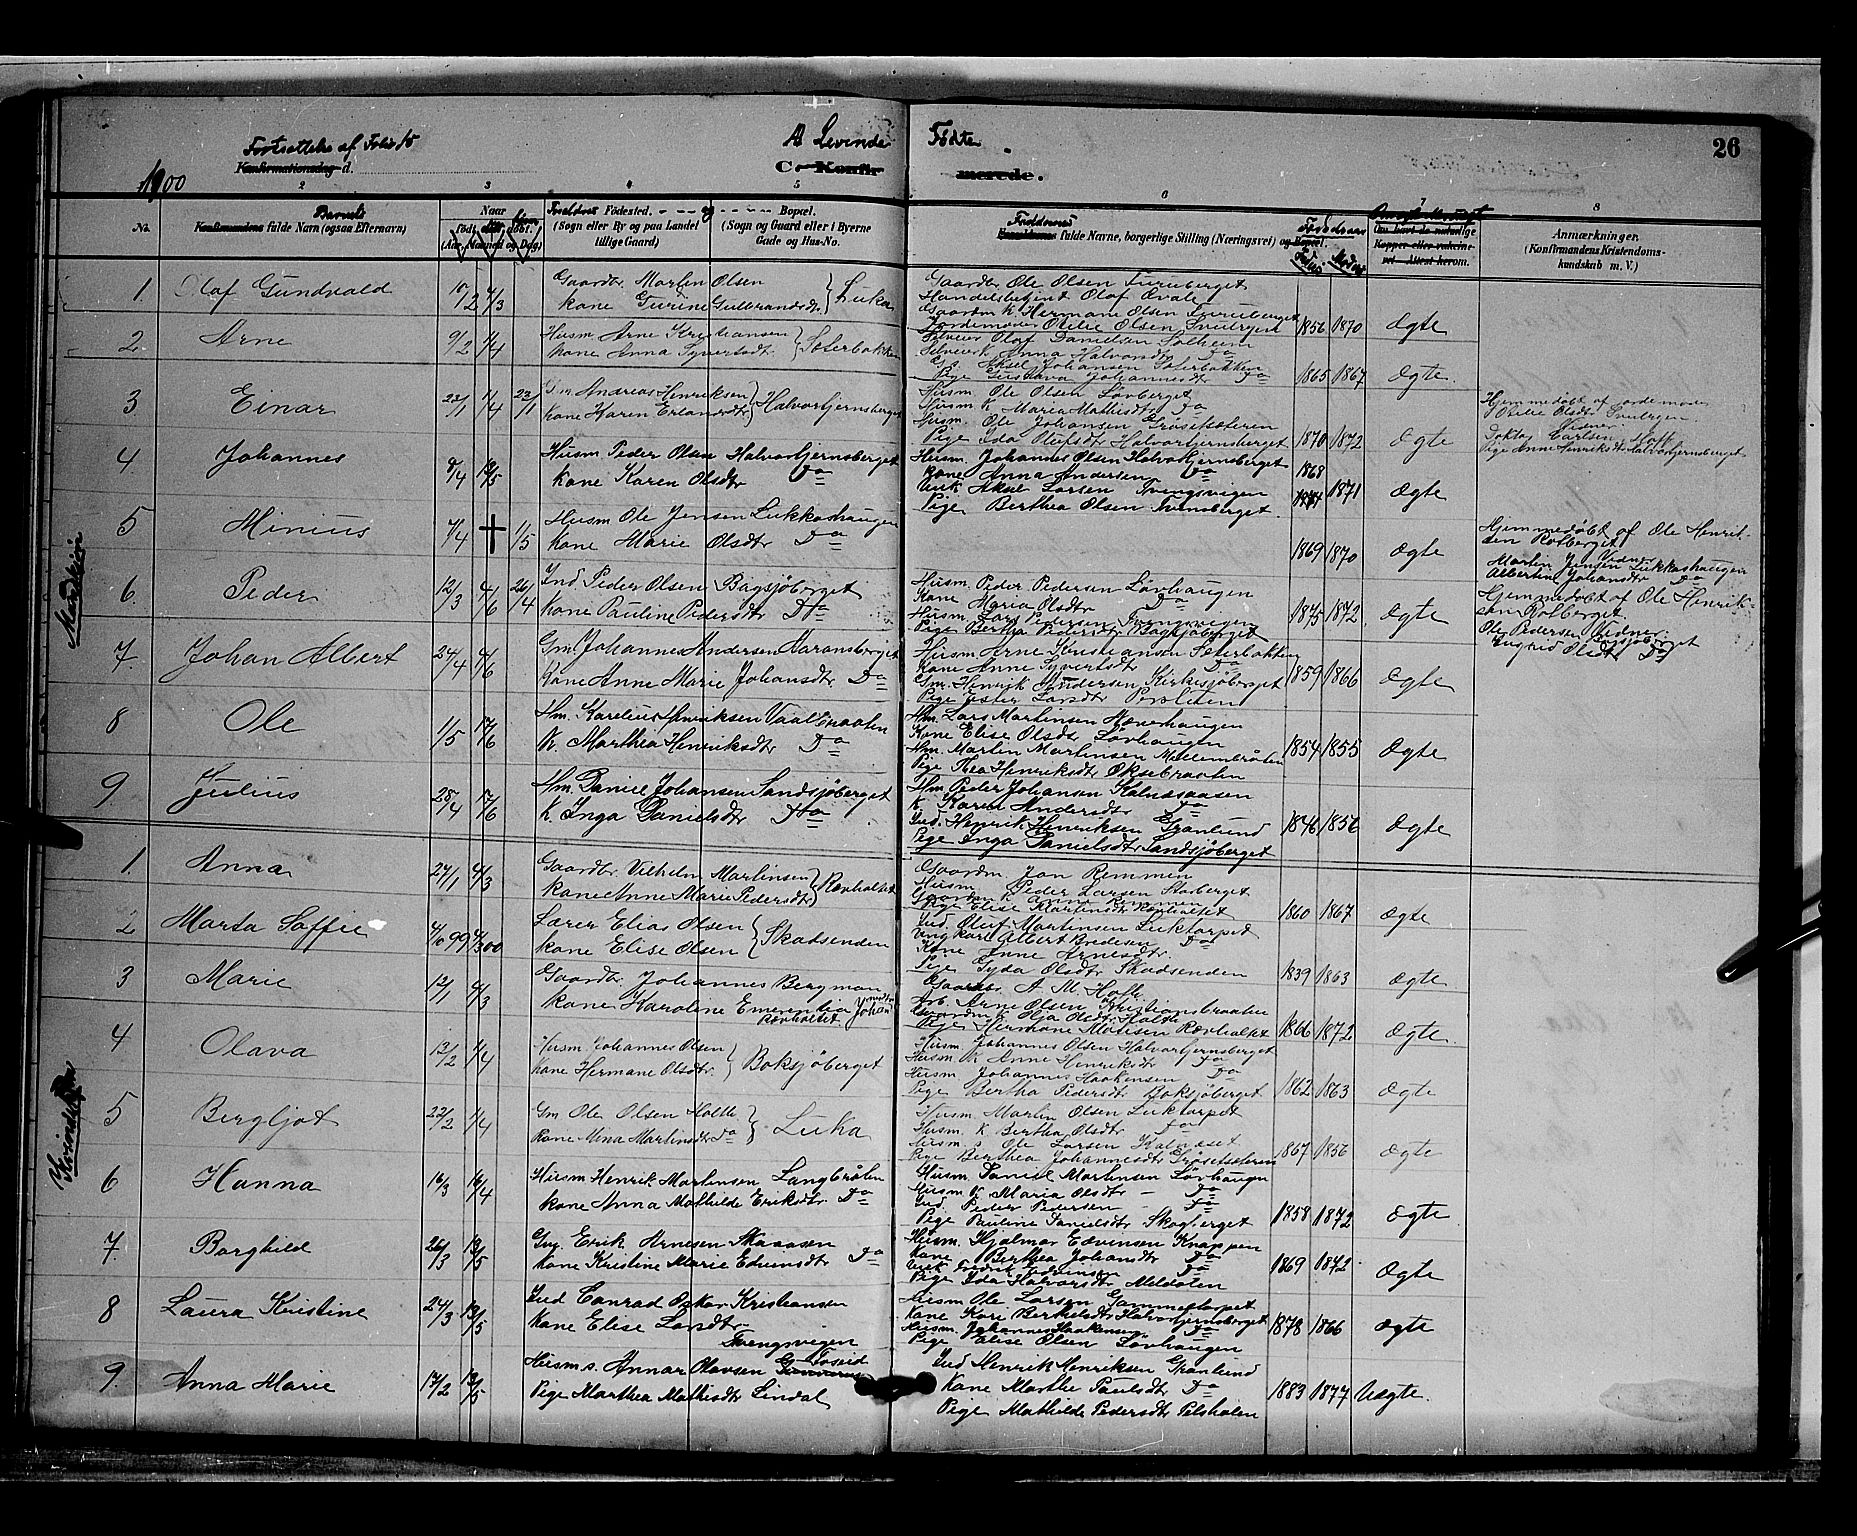 Fortsættelse af Folio 15
A Levende Fødte 26
Konfirmationsdag d.
C. Konfirmerede.
1900
2 3 4 5 6 7 8
No. Barnets
Konfirmandens fulde Navn (ogsaa Efternavn)
Naar
født døbt
(Aar, Maaned og Dag)
Forældres Fødested. og Bopæl.
(Sogn eller By og paa Landet tillige Gaard)
(Sogn og Gaard eller i Byerne Gade og Hus-No.
Faddernes
fulde Navne, borgerlige Stilling (Næringsvei) og Bopæl.
Forældrenes
Faders Moders
Om havt de naturlige
Kopper eller vaksineret. Attest herom.
Anmærkninger
(Konfirmandens Kristendomskundskab m. V.)
Mandkjøn
1. Olaf Gundvald 10/2 4/3 Gaardbr. Martin Olsen
Kone Turine Gulbrandsdt. } Luka
Gaardbr Ole Olsen Furuberget
Handelsbetjent Olaf Ovale
Gaardm K. Hermane Olsen Furuberget
Jordemoder Otelie Olsen Snulrgen 1856 1870 Ægte
2. Arne 9/2 1/4 Husm Arne Kristiansen
Kone Anna Syvertsdt. } Sæterbakken
Selveier Olaf Danielsen Solheim
Selveiersk Anna Halvorsdtr Do
Gs. Aksel Johansen Sæterbakken
Pige Gustava Johannesdtr Do 1865 1867 Ægte.
3 Einar 22/1 1/4 23/1 Gm Andreas Henriksen
Kone Karen Erlandsdtr } Halvorbjernsberget
Husm Ole Olsen Løvberget
Husm K. Maria Mathisdtr Do
Husm. Ole Johansen Grøsetsæteren
Pige Ida Olufsdtr Halvorbjernsberget 1870 1872 Ægte
Hjemmedøbt af Jordemoder
Otelie Olsdtr Snulrgen
Vidner:
Doktor Carlsen, Moss
Pige Anne Henriksdt Halvorbjernsberget
4 Johannes 8/4 13/5 Husm Peder Olsen Halvorbjernsberget
Kone Karen Olsdtr Do
Husm. Johannes Olsen Halvorbjernsberget
Kone Anna Andersen Do
Unk Aksel Larsen Tvengsvigen
Pige Berthea Olsen Furuberget. 1868 1871 Ægte
5 Minius 7/4 † 1/5 Husm Ole Jensen Lukkashaugen
Kone Marie Olsdtr Do 1869 1870 Ægte
Hjemmedøbt af Ole Henriksen Rolberget
Vidner
Martin Jensen Lukkashaugen
Albertine Johansdtr Do
6. Peder 12/3 4/6 26/4 Ind Peder Olsen Bagsjøberget
Kone Pauline Pedersdtr Do
Husm Peder Pedersen Løvhaugen
Kone Maria Olsdtr Do
Husm Lars Pedersen Tvengsvigen
Pige Bertha Pedersdtr Bagsjøberget 1875 1872. Ægte
Hjemmedøbt af Ole Henriksen Rolberget
Vidner
Ole Pedersen Bagsjøberget
Ingrid Olsdtr Do
7. Johan Albert 24/4 4/6 Gm Johannes Andersen Aaronsberget
Kone Anne Marie Johansdtr Do
Husm Arne Kristiansen Sæterbakken
Kone Anne Syvertsdtr Do
Gm. Henrik Andersen Kirkesjøberget
Pige Ester Larsdtr Persliden 1859 1866 Ægte
8 Ole 1/5 17/6 Hm. Karelius Henriksen Vaalbraaten
K. Marthea Henriksdtr Do
Hm. Lars Martinsen Hænehaugen
Kone Elise Olsdtr Løvhaugen
Hm. Martin Martinsen Mellembråten
Pige Thea Henriksdtr Oksebraaten 1854 1855 Ægte
9 Julius 28/4 17/6 Hm Daniel Johansen Sandsjøberget
K. Inga Danielsdtr Do
Hm Peder Johansen Kalnæsaasen
K. Karen Andersdtr Do
Ind. Henrik Henriksen Granlund
Pige Inga Danielsdtr Sandsjøberget 1846 1856 Ægte
Kvindekjøn
1. Anna 27/1 4/3 Gaardbr. Vilhelm Martinsen
Kone Anne Marie Pedersdtr } Rævholtet
Gaardm Jan Remmen
Husm Peder Larsen Starberget
Gaardm K Anna Remmen
Pige Elise Martinsdtr Rævholtet 1860 1867 Ægte
2 Marta Soffie 4/10 99 4/3 00 Lærer Elias Olsen
Kone Elise Olsen } Skadsenden
Ind. Oluf Martinsen Luktorpet
Ungkarl Albert Bredesen Do
Kone Anne Arnesdtr.
Pige Gyda Olsdtr Skadsenden 1839 1863 Ægte
3 Marie 12/1 4/3 Gaardbr. Johannes Bergman
Kone Karoline Emerentia Johansdtr
Rævholtet
Gaardbr. A. M. Holth
Arb. Arne Olsen Kristiansbraaten
Gaardm K Olga Olsdtr Holth
Pige Hermane Madsen Rævholtet 1866 1872 Ægte.
4 Olava 13/2 1/4 Husm Johannes Olsen
Kone Hermane Olsdtr. } Boksjøberget
Husm Johannes Olsen Halvorbjernsberget
Husm K Anne Henriksdtr Do
Husm Johannes Haakensen Do
Pige Bertha Pedersdtr Boksjøberget 1862 1863 Ægte
5 Bergljot 22/2 1/4 Gm Ole Olsen Holth
Kone Mina Martinsdtr Do } Luka
Husm. Martin Olsen Luktorpet
Husm. K Bertha Olsdtr Do
Husm s Ole Larsen Kalnæset
Pige Berthea Johannesdtr Grøsetsæteren 1867 1856 Ægte
6 Hanna 16/3 16/4 Husm Henrik Martinsen Langbråten
Kone Anna Mathilde Eriksdtr Do
Husm Daniel Martinsen Løvhaugen
Husm K Maria Olsdtr - Do
Ind. Peder Pedersen - Do
Pige Pauline Danielsdtr Skogberget 1858 1872 Ægte
7. Borghild 26/3 13/5 Gm. Erik Arnesen Skaaasen
Kone Kristine Marie Edvinsdtr Do
Husm Hjalmar Edvinsen Knappen
Kone Berthea Johansdtr Do
Unk Fredrik Edvinsen Do
Pige Ida Halvorsdtr Meldalen 1869 1872. Ægte
8 Laura Kristine 24/3 13/5 Ind Conrad Oskar Kristiansen
Kone Elise Larsdtr.
Tvengsvigen
Husm Ole Larsen Gammeltorpet
Kone Kari Berthelsdtr Halvorbjernsberget
Husm. Johannes Haakensen Do
Pige Elise Olsen Løvhaugen 1878 1866 Ægte
9. Anna Marie 17/2 13/5 Husm.s. Annar Olavsen Fosseid
Pige Marthea Mathisdtr Lindal
Ind Henrik Henriksen Granlund
Kone Marthe Paulsdtr Do
Pige Mathilde Pedersdtr Pilsholen 1883 1877 Uægte.